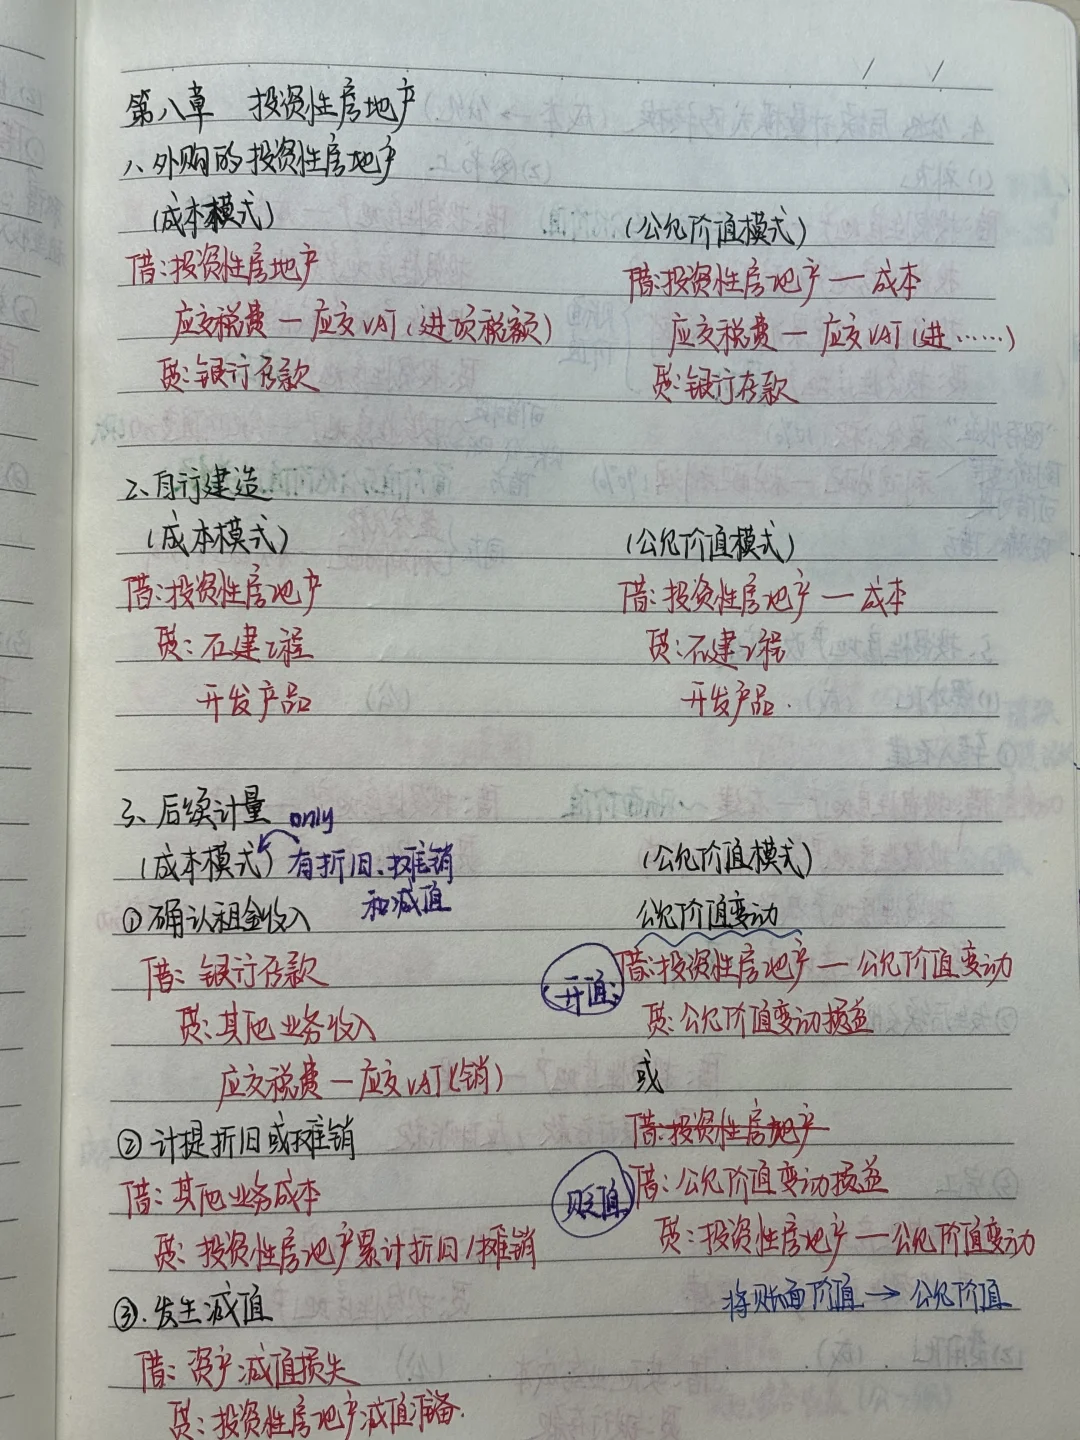 第八章 投资性房地产
一、外购的投资性房地产
(成本模式) (公允价值模式)
借:投资性房地产 借:投资性房地产—成本
应交税费—应交VAT(进项税额) 应交税费—应交VAT(进……)
贷:银行存款 贷:银行存款
二、自行建造
(成本模式) (公允价值模式)
借:投资性房地产 借:投资性房地产—成本
贷:在建工程 贷:在建工程
开发产品 开发产品.
三、后续计量 only
(成本模式) 有折旧、摊销 (公允价值模式)
和减值
①确认租金收入 公允价值变动
借:银行存款 升值: 借:投资性房地产—公允价值变动
贷:其他业务收入 贷:公允价值变动损益
应交税费—应交VAT(销) 或
②计提折旧或摊销 借:投资性房地产
借:其他业务成本 贬值: 借:公允价值变动损益
贷:投资性房地产累计折旧/摊销 贷:投资性房地产—公允价值变动
③.发生减值 将账面价值→公允价值
借:资产减值损失
贷:投资性房地产减值准备.